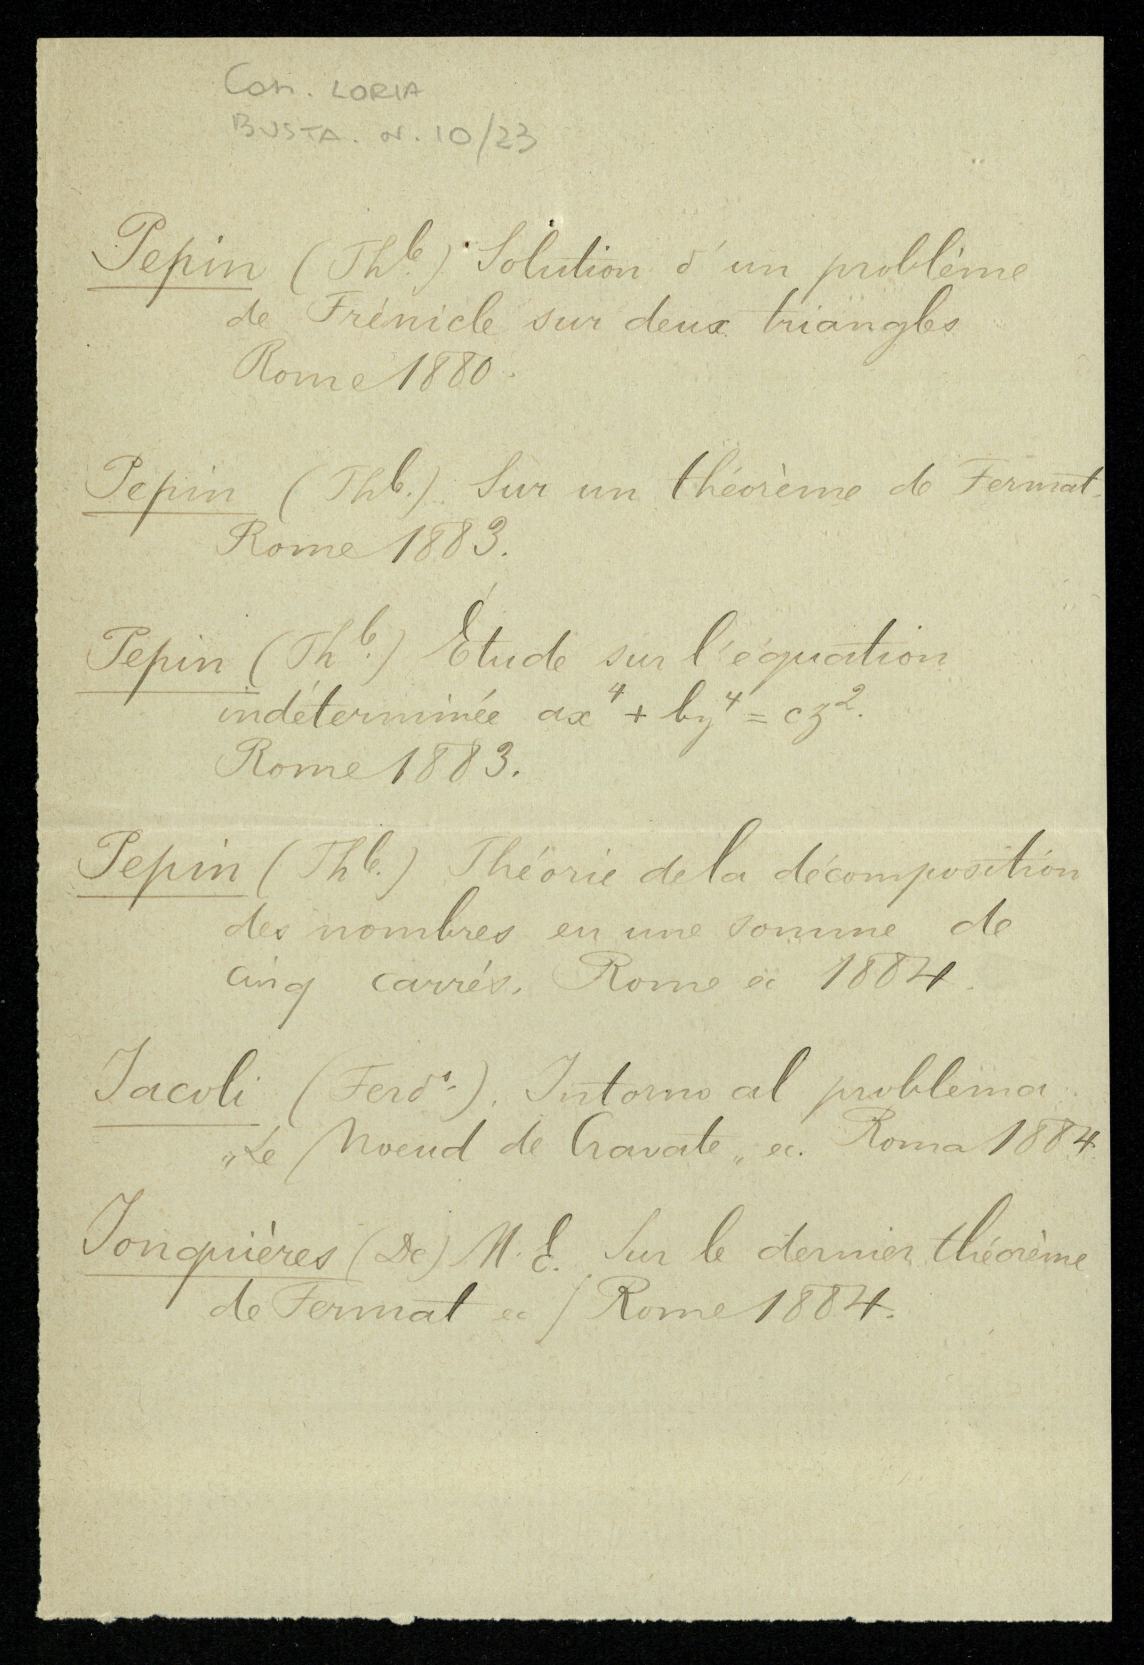 Con. LORIA
BUSTA. N. 10/23
Pepin (Thle.) Solution d'un problème
de Frénicle sur deux triangles
Rome 1880.
Pepin (Thle.) Sur un théorème de Fermat.
Rome 1883.
Pepin (Thle.) Étude sur l'équation
indéterminée ax⁴ + by⁴ = cz².
Rome 1883.
Pepin (Thle.) Théorie de la décomposition
des nombres en une somme de
cinq carrés. Rome ec 1884.
Jacoli (Ferdo.). Intorno al problema
"Le Noeud de Cravate" ec. Roma 1884.
Jonquières (De) M. E. Sur le dernier théorème
de Fermat ec / Rome 1884.